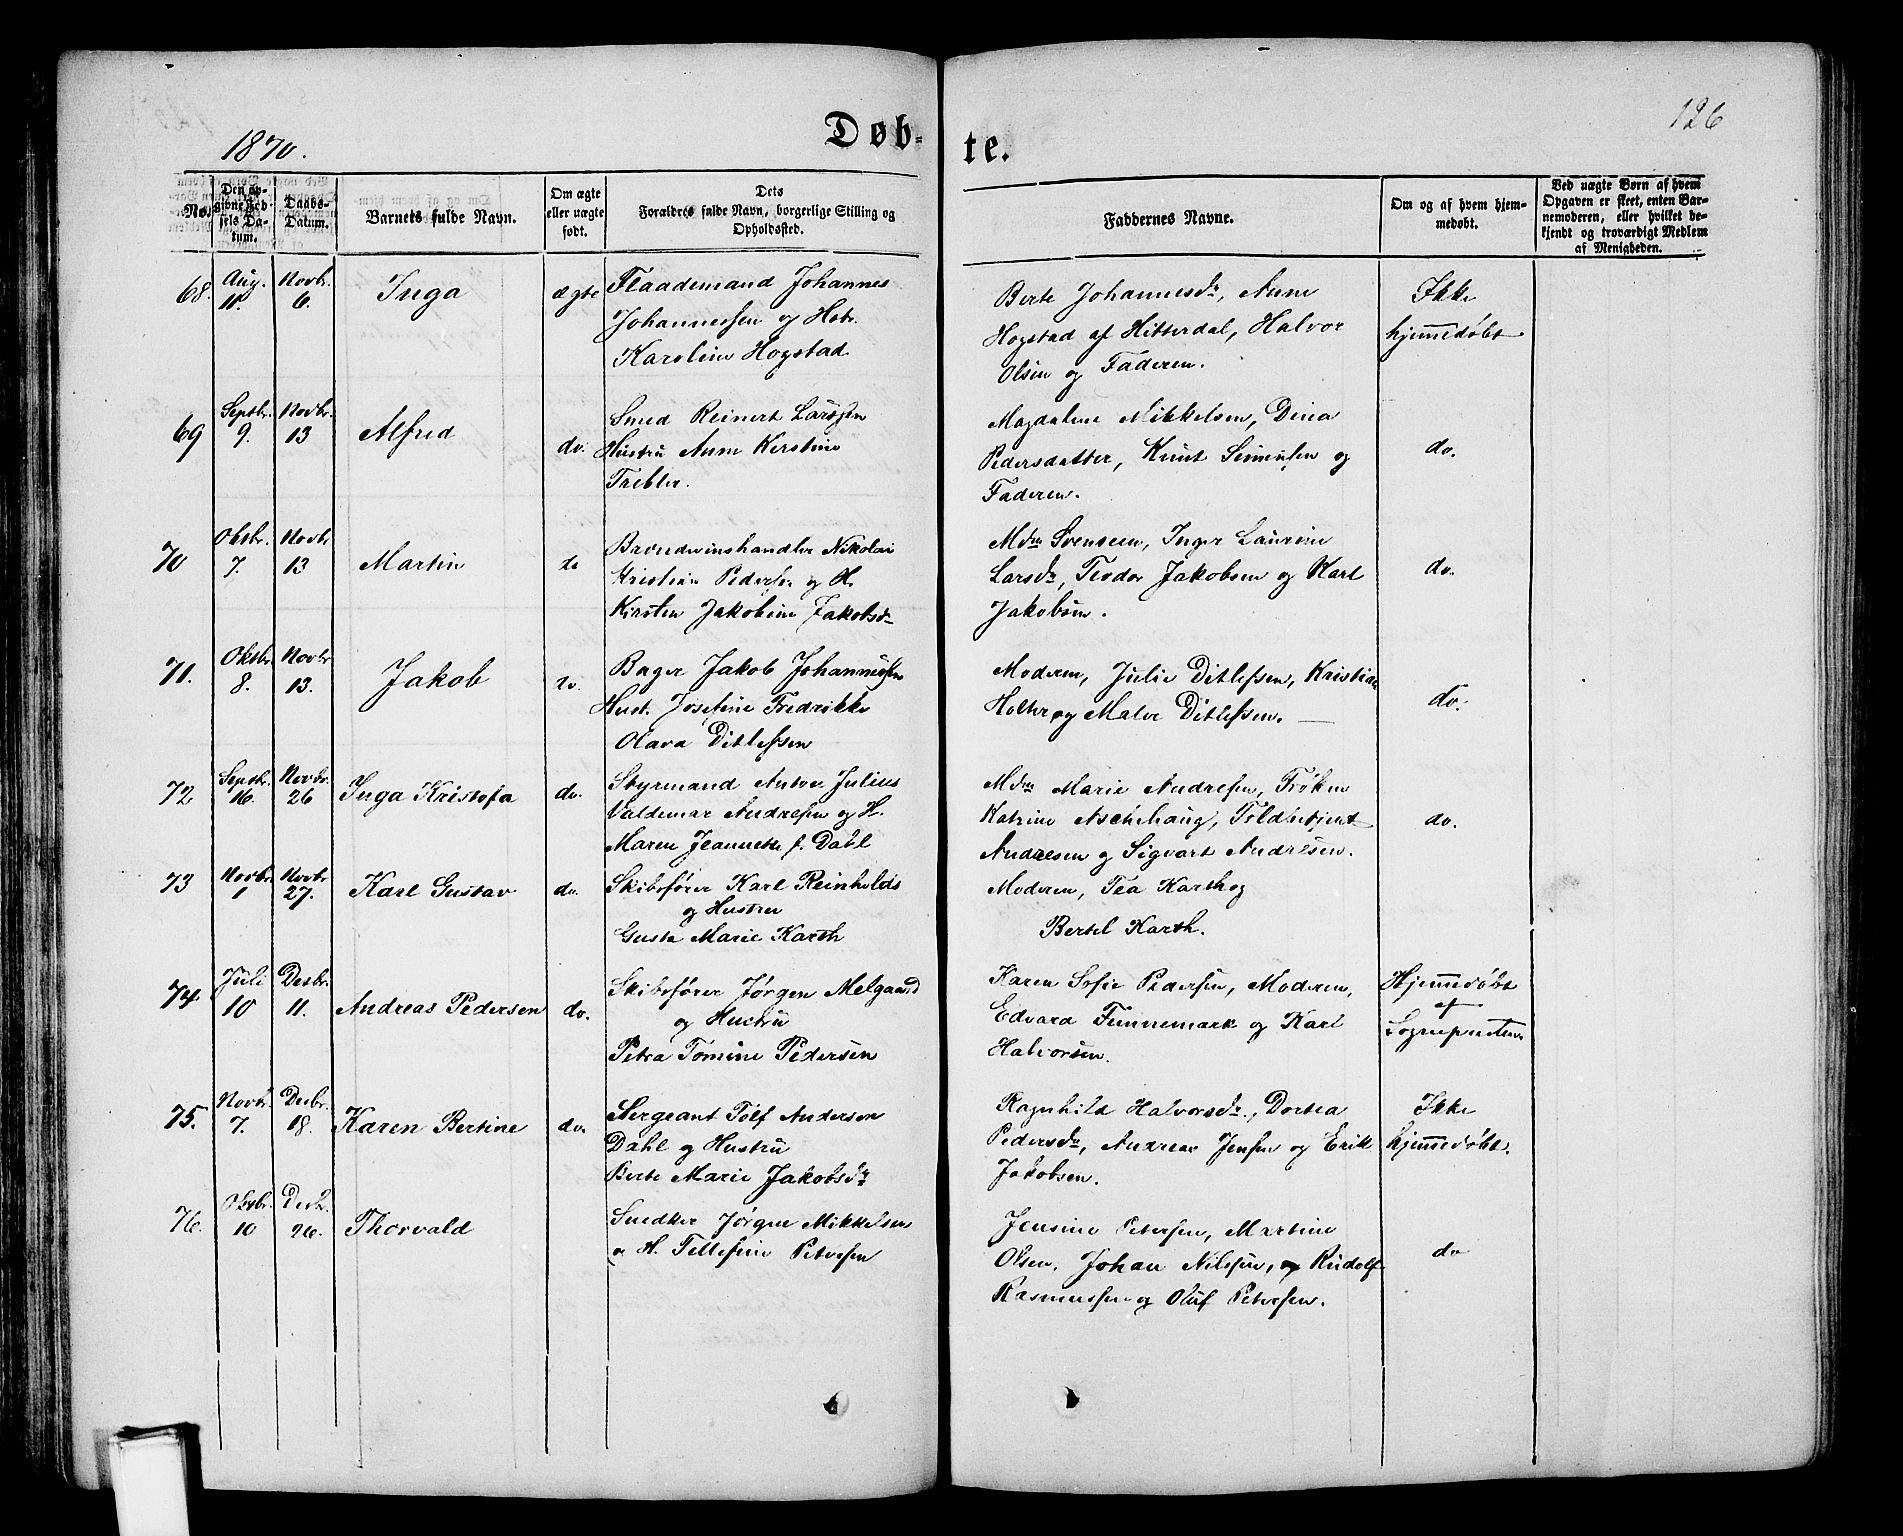 126
1870.
Døb-
te.
No.
Den op-
givne Fød-
sels Da-
tum.
Daabs-
Datum.
Barnets fulde Navn.
Om ægte
eller uægte
født.
Dets
Forældres fulde Navn, borgerlige Stilling og
Opholdssted.
Faddernes Navne.
Om og af hvem hjem-
medøbt.
Ved uægte Børn af hvem
Opgaven er skeet, enten Bar-
nemoderen, eller hvilket be-
kjendt og troværdigt Medlem
af Menigheden.
68.
Aug.
11.
Novbr.
6.
Inga
ægte
Flaademand Johannes
Johannessen og Hstr.
Karoline Hogstad
Berte Johannesdr, Anne
Hogstad af Hitterdal, Halvor
Olsen og Faderen.
Ikke
hjemmedøbt
69
Septbr.
9.
Novbr.
13
Alfred
do.
Smed Reinert Larssen
Hustru Anne Kerstine
Trebler.
Magdalene Mikkelsen, Dina
Pedersdatter, Knut Simensen og
Faderen.
do.
70
Oktbr.
7.
Novbr
13
Martin
do
Brændevinshandler Nikolai
Kristian Pedersen og H.
Kirsten Jakobine Jakobsdr
Mdm Svensen, Inger Laurine
Larsdr, Teodor Jakobsen og Karl
Jakobsen.
do.
71.
Oktbr.
8.
Novbr
13.
Jakob
do.
Bager Jakob Johannessen
Hust. Josefine Fredrikke
Olava Ditlefssen
Moderen, Julie Ditlefssen, Kristian
Holte og Malve Ditlefssen.
do.
72
Septbr.
16.
Novbr.
26
Inga Kristofa
do.
Styrmand Anton Julius
Valdemar Andresen og H.
Maren Jeannette f. Dahl
Mdm Marie Andresen, Frøken
Katrine Aschehaug, Toldbetjent
Andresen og Sigvart Andresen.
do.
73
Novbr.
1
Novbr
27.
Karl Gustav
do.
Skibsfører Karl Reinholds
og Hustru
Gusta Marie Karth
Moderen, Tea Karth og
Bertel Karth.
74
Juli
10
Desbr.
11.
Andreas Pedersen
do.
Skibsfører Jørgen Melgaard
og Hustru
Petra Tomine Pedersen
Karen Sofie Pedersen, Moderen,
Edvard Funnemark og Karl
Halvorsen.
Hjemmedøbt
af
Sognepresten
75.
Novbr.
7.
Desbr.
18.
Karen Bertine
do.
Sergeant Tolf Andersen
Dahl og Hustru
Berte Marie Jakobsdr
Ragnhild Halvorsdr., Dortea
Pedersdr, Andreas Jensen og Erik
Jakobsen.
Ikke
hjemmedøbt.
76.
Oktbr.
10
Desbr.
26.
Thorvald
Snedker Jørgen Mikkelsen
og H. Tellefine Petersen
Jensine Petersen, Martine
Olsen, Johan Nilssen, og Rudolf
Rasmussen og Oluf Petersen.
do